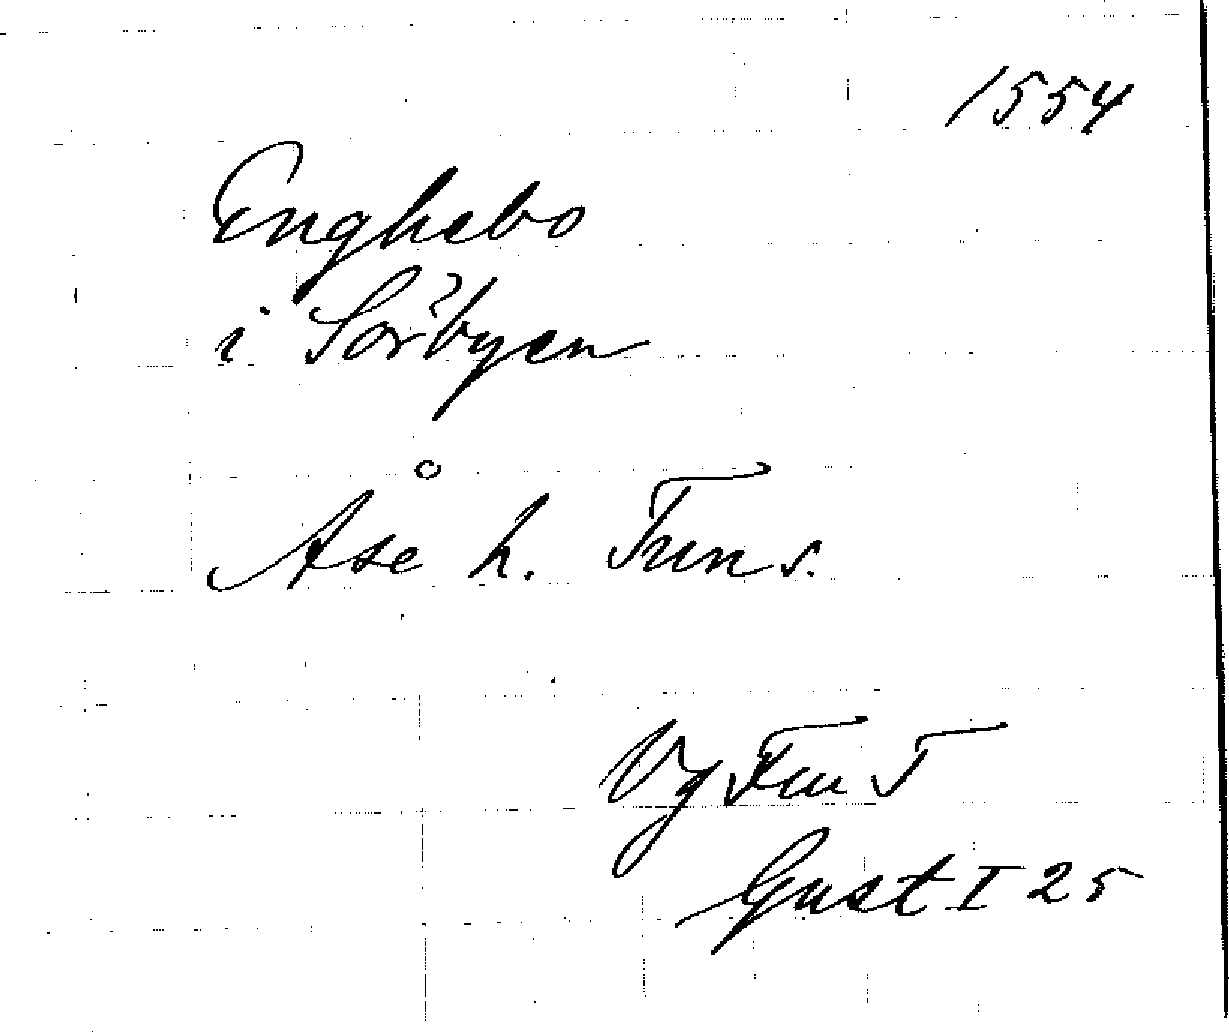 1554
Enghebo
i Sörbyen
Åse h. Tun s.
Vg Tun T
Gust I 25